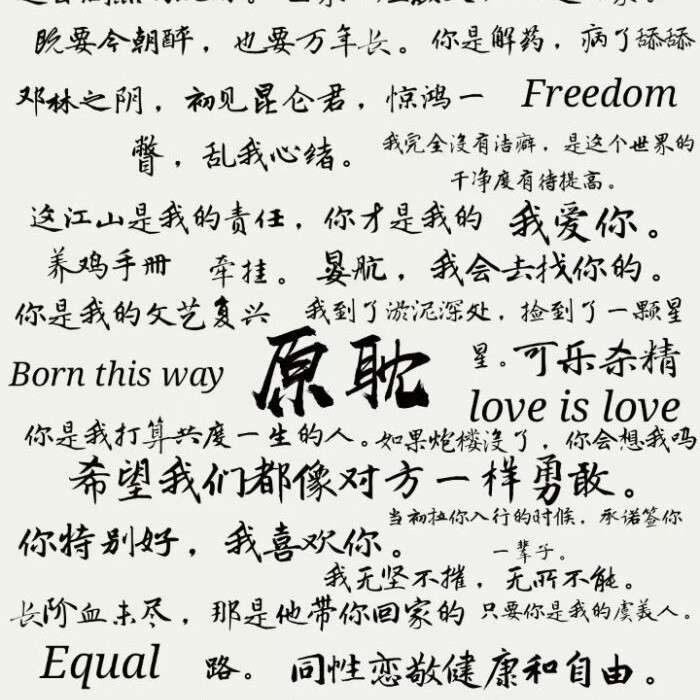 晚要今朝醉，也要万年长。你是解药，病了舔舔
邓林之阴，初见昆仑君，惊鸿一 Freedom
瞥，乱我心绪。
我完全没有洁癖，是这个世界的
干净度有待提高。
这江山是我的责任，你才是我的 我爱你。
养鸡手册 牵挂。晏航，我会去找你的。
你是我的文艺复兴 我到了淤泥深处，捡到了一颗星
Born this way 原耽 星。可乐杀精
love is love
你是我打算共度一生的人。如果炮楼没了，你会想我吗
希望我们都像对方一样勇敢。
当初拉你入行的时候，承诺签你
你特别好，我喜欢你。 一辈子。
我无坚不摧，无所不能。
长阶血未尽，那是他带你回家的 只要你是我的虞美人。
Equal 路。同性恋敬健康和自由。